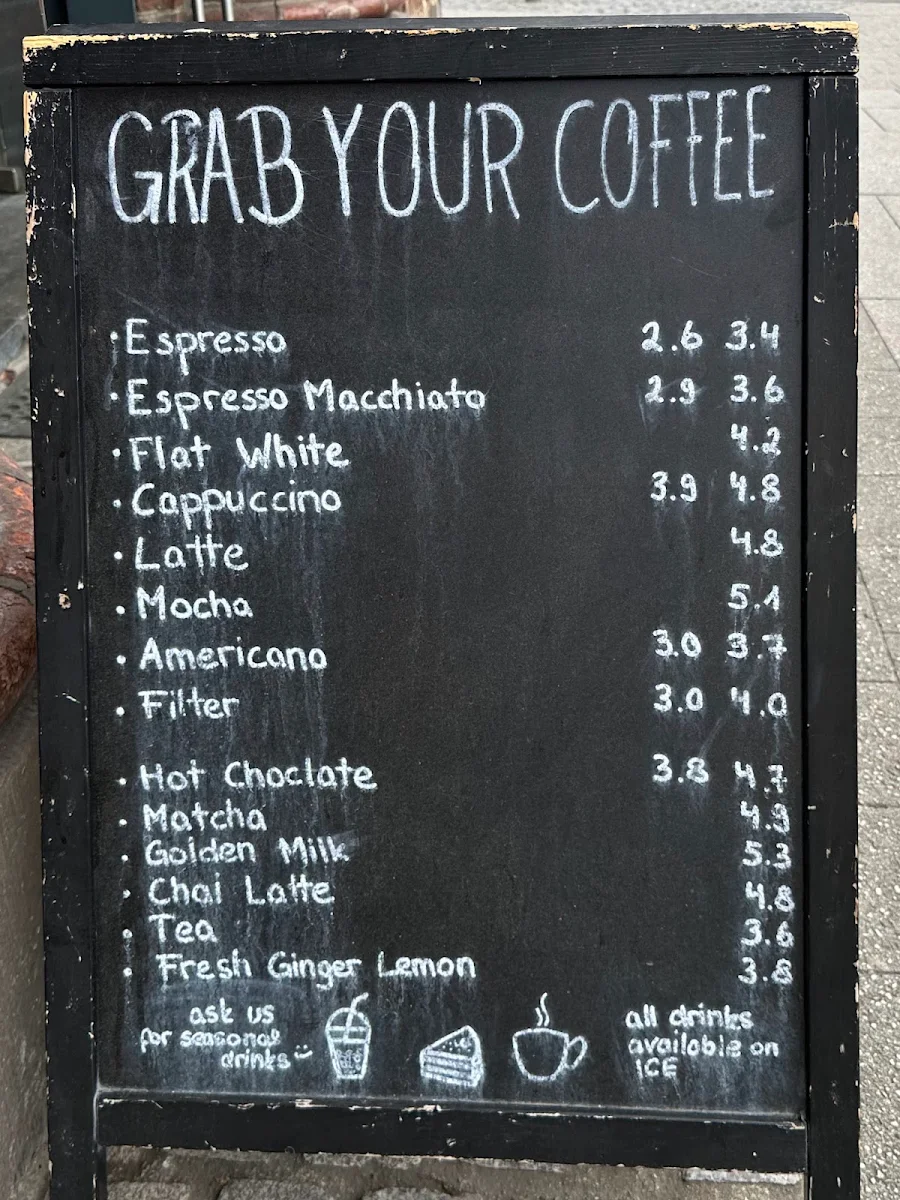 GRAB YOUR COFFEE
· Espresso 2.6 3.4
· Espresso Macchiato 2.9 3.6
· Flat White 4.2
· Cappuccino 3.9 4.8
· Latte 4.8
· Mocha 5.1
· Americano 3.0 3.7
· Filter 3.0 4.0
· Hot Choclate 3.8 4.7
· Matcha 4.9
· Golden Milk 5.3
· Chai Latte 4.8
· Tea 3.6
· Fresh Ginger Lemon 3.8
ask us
for seasonal
drinks
all drinks
available on
ICE